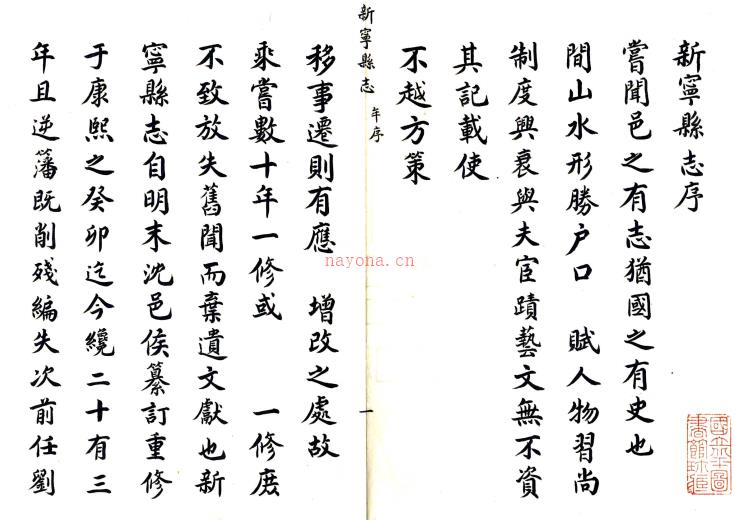 新寧縣志序
嘗聞邑之有志猶國之有史也
間山水形勝户口 賦人物習尚
制度興衰與夫宦蹟藝文無不資
其記載使
不越方策
新寧縣志 年序
一
移事遷則有應 增改之處故
乘嘗數十年一修或 一修庶
不致放失舊聞而棄遺文獻也新
寧縣志自明末沈邑侯纂訂重修
于康熙之癸卯迄今纔二十有三
年且逆藩既削殘編失次前任劉
nayona.cn